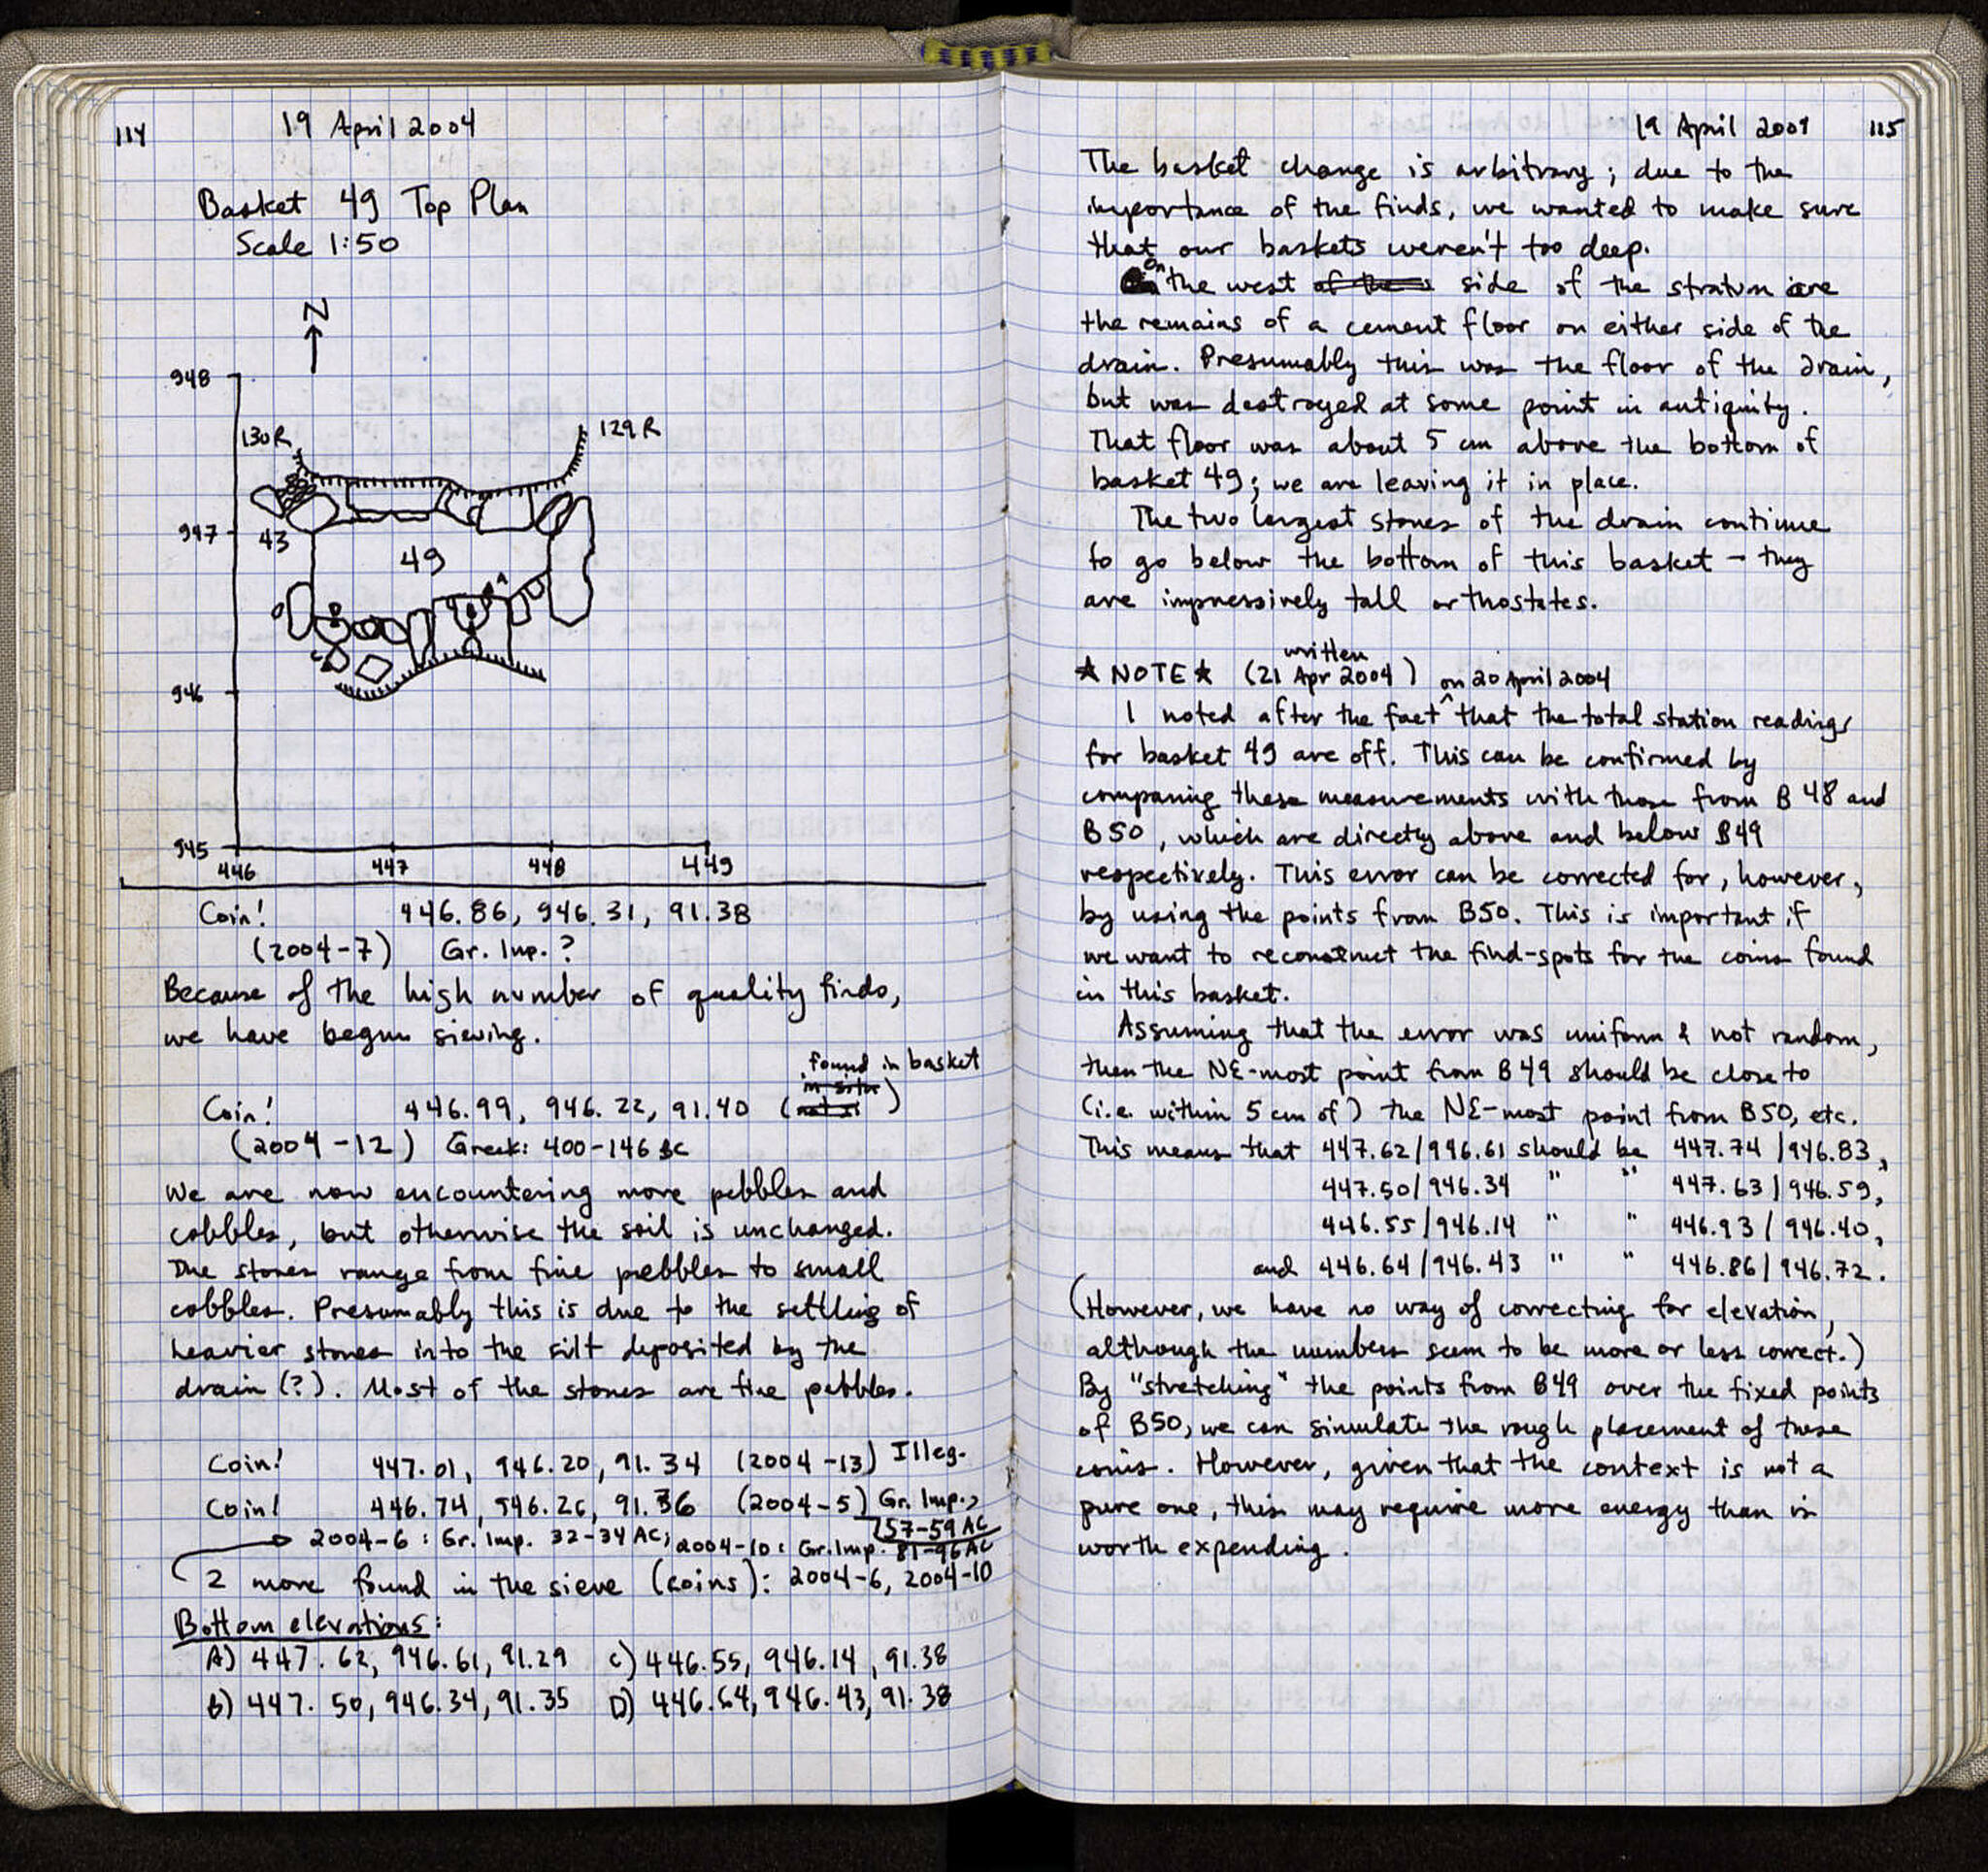 114
19 April 2004
Basket 49 Top Plan
Scale 1:50
N
948
130R
129R
947
43
49
A
B
D
C
946
945
446 447 448 449
Coin! 446.86, 946.31, 91.38
(2004-7) Gr. Imp.?
Because of the high number of quality finds,
we have begun sieving.
found in basket
in situ
Coin! 446.99, 946.22, 91.40 (not si)
(2004-12) Greek: 400-146 BC
We are now encountering more pebbles and
cobbles, but otherwise the soil is unchanged.
The stones range from fine pebbles to small
cobbles. Presumably this is due to the settling of
heavier stones into the silt deposited by the
drain (?). Most of the stones are fine pebbles.
Coin! 447.01, 946.20, 91.34 (2004-13) Illeg.
Coin! 446.74, 946.26, 91.36 (2004-5) Gr. Imp.,
57-59 AC
2004-6: Gr. Imp. 32-34 AC; 2004-10: Gr. Imp. 81-96 AC
2 more found in the sieve (coins): 2004-6, 2004-10
Bottom elevations:
A) 447.62, 946.61, 91.29 C) 446.55, 946.14, 91.38
B) 447.50, 946.34, 91.35 D) 446.64, 946.43, 91.38
19 April 2004 115
The basket change is arbitrary; due to the
importance of the finds, we wanted to make sure
that our baskets weren't too deep.
On the west of the side of the stratum are
the remains of a cement floor on either side of the
drain. Presumably this was the floor of the drain,
but was destroyed at some point in antiquity.
That floor was about 5 cm above the bottom of
basket 49; we are leaving it in place.
The two largest stones of the drain continue
to go below the bottom of this basket - they
are impressively tall orthostates.
written
★ NOTE ★ (21 Apr 2004) on 20 April 2004
I noted after the fact ^ that the total station readings
for basket 49 are off. This can be confirmed by
comparing these measurements with those from B 48 and
B50, which are directly above and below B49
respectively. This error can be corrected for, however,
by using the points from B50. This is important if
we want to reconstruct the find-spots for the coins found
in this basket.
Assuming that the error was uniform & not random,
then the NE-most point from B49 should be close to
(i.e. within 5 cm of) the NE-most point from B50, etc.
This means that 447.62/946.61 should be 447.74/946.83,
447.50/946.34 " " 447.63/946.59,
446.55/946.14 " " 446.93/946.40,
and 446.64/946.43 " " 446.86/946.72.
(However, we have no way of correcting for elevation,
although the numbers seem to be more or less correct.)
By "stretching" the points from B49 over the fixed points
of B50, we can simulate the rough placement of these
coins. However, given that the context is not a
pure one, this may require more energy than is
worth expending.